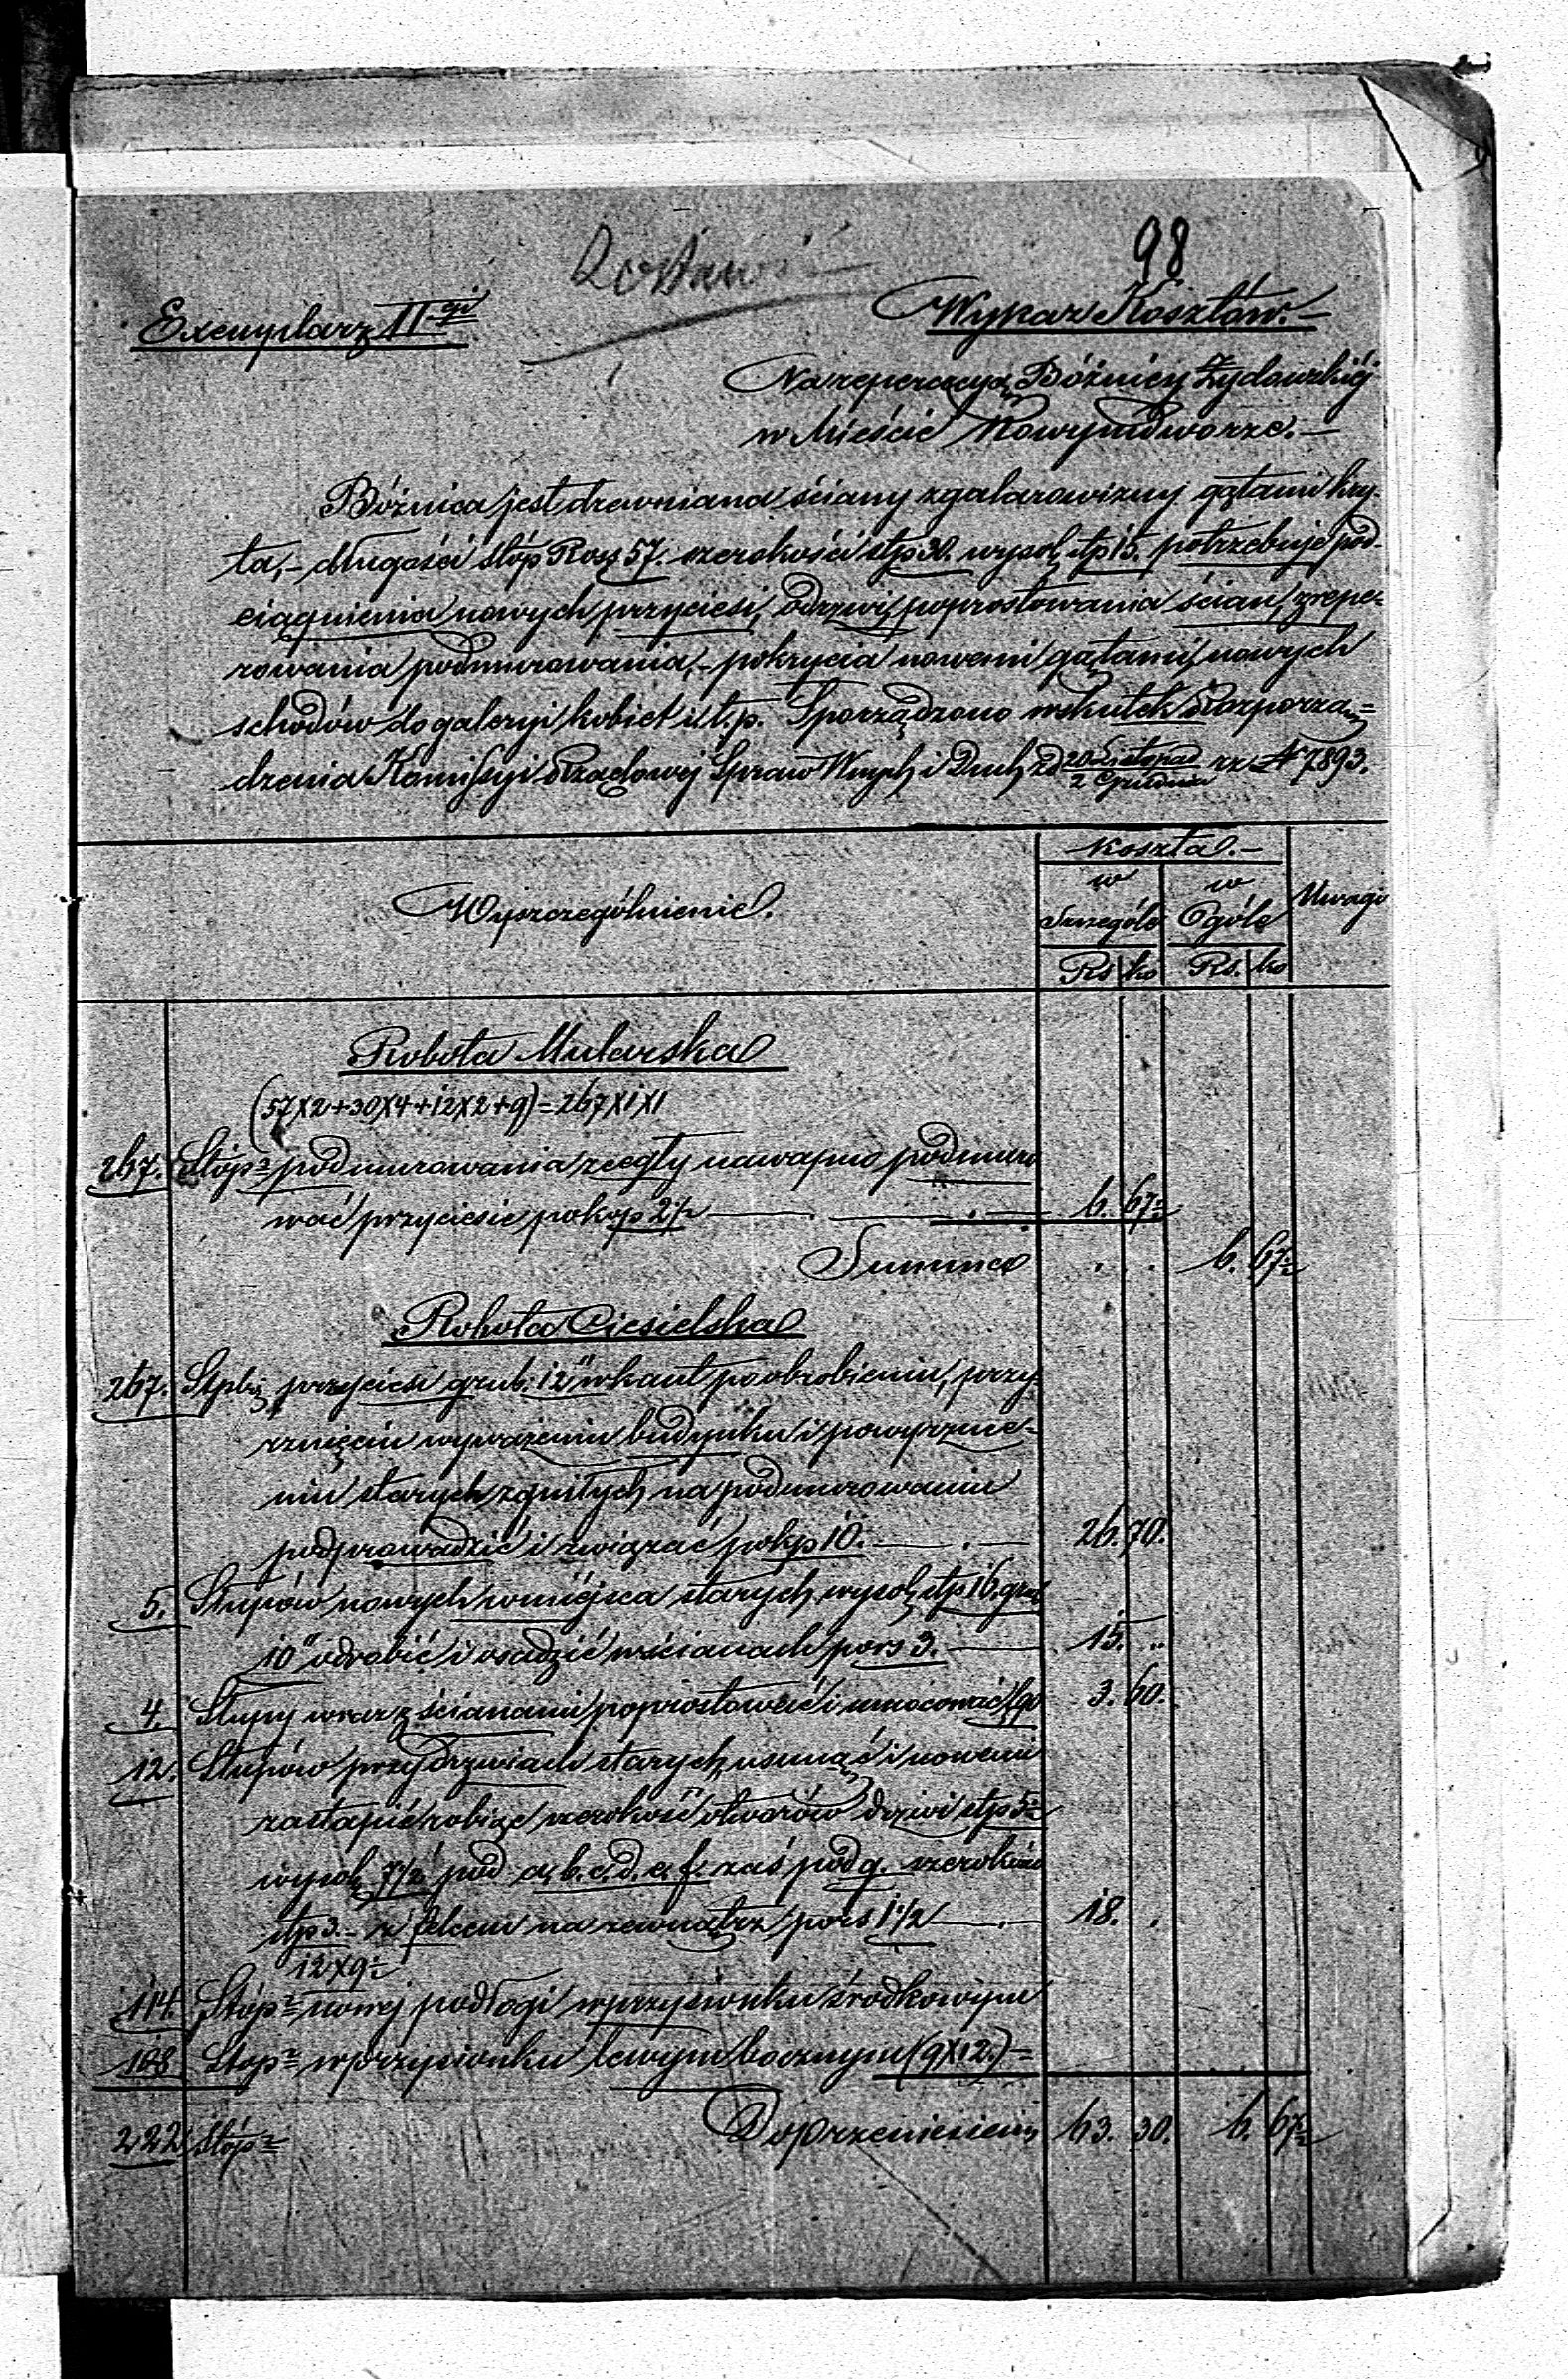 98
Exemplarz II gi
Wykaz Kosztów.–
Na reperacyą Bóżnicy Żydowskiéj
w Mieście Nowymdworze.–
Bóżnica jest drewniana ściany z galarowizny gątami kry-
ta,– długości stóp Ross 57. szerokości stp 30. wysok stp 15. potrzebuje pod-
ciągnienia nowych przyciesi, odrzwi, poprostowania ścian, zrepe-
rowania podmurowania,– pokrycia nowemi gątami, nowych
schodów do galeryi kobiet i t. p. Sporządzono wskutek Rozporzą-
dzenia Komissyi Rządowéj Spraw Wnych i Duch zd 20 Listopad / 2 Grudnia rz N 7893.
Koszta.–
Wyszczególnienie.
w Szczególe
w Ogóle
Uwagi
Rs ko Rs. ko
Robota Mularska
(57×2+30×4+12×2+9)=267×1×1
267. Stóp² podmurowania z cegły na wapno podmuro
wać przyciesie po kop 2½ 6. 67½
Summa . . 6. 67½
Robota Ciesielska
267. Stp bież przyciesi grub. 12" w kant po obrobieniu, przy
rznięciu wyważeniu budynku i powyrznie-
niu starych zgniłych na podmurowaniu
podprowadzić i związać po kp 10.– 26. 70.
5. Słupów nowych w miéjsca starych wysok stp 16. grub
10" odrobić i osadzić w ścianach po rs 3.– 15. „
4. Słupy wraz z ścianami poprostować i umocować /90 3. 60.
12. Słupów przy drzwiach starych usunąć i nowemi
zastąpić robiąc szerokość otworów drzwi stp 5½
wysok 7½ pod a, b. c. d. e. f. zaś pod g. szerokości
stp 3.– z felcem na zewnątrz po rs 1½ 18. .
12×9½
114. Stóp² nowej podłogi w przysionku środkowym
108 Stop² w przysionku lewym bocznym (9×12.)=
222 Stóp² Do przeniesienia 63. 30. 6. 67½